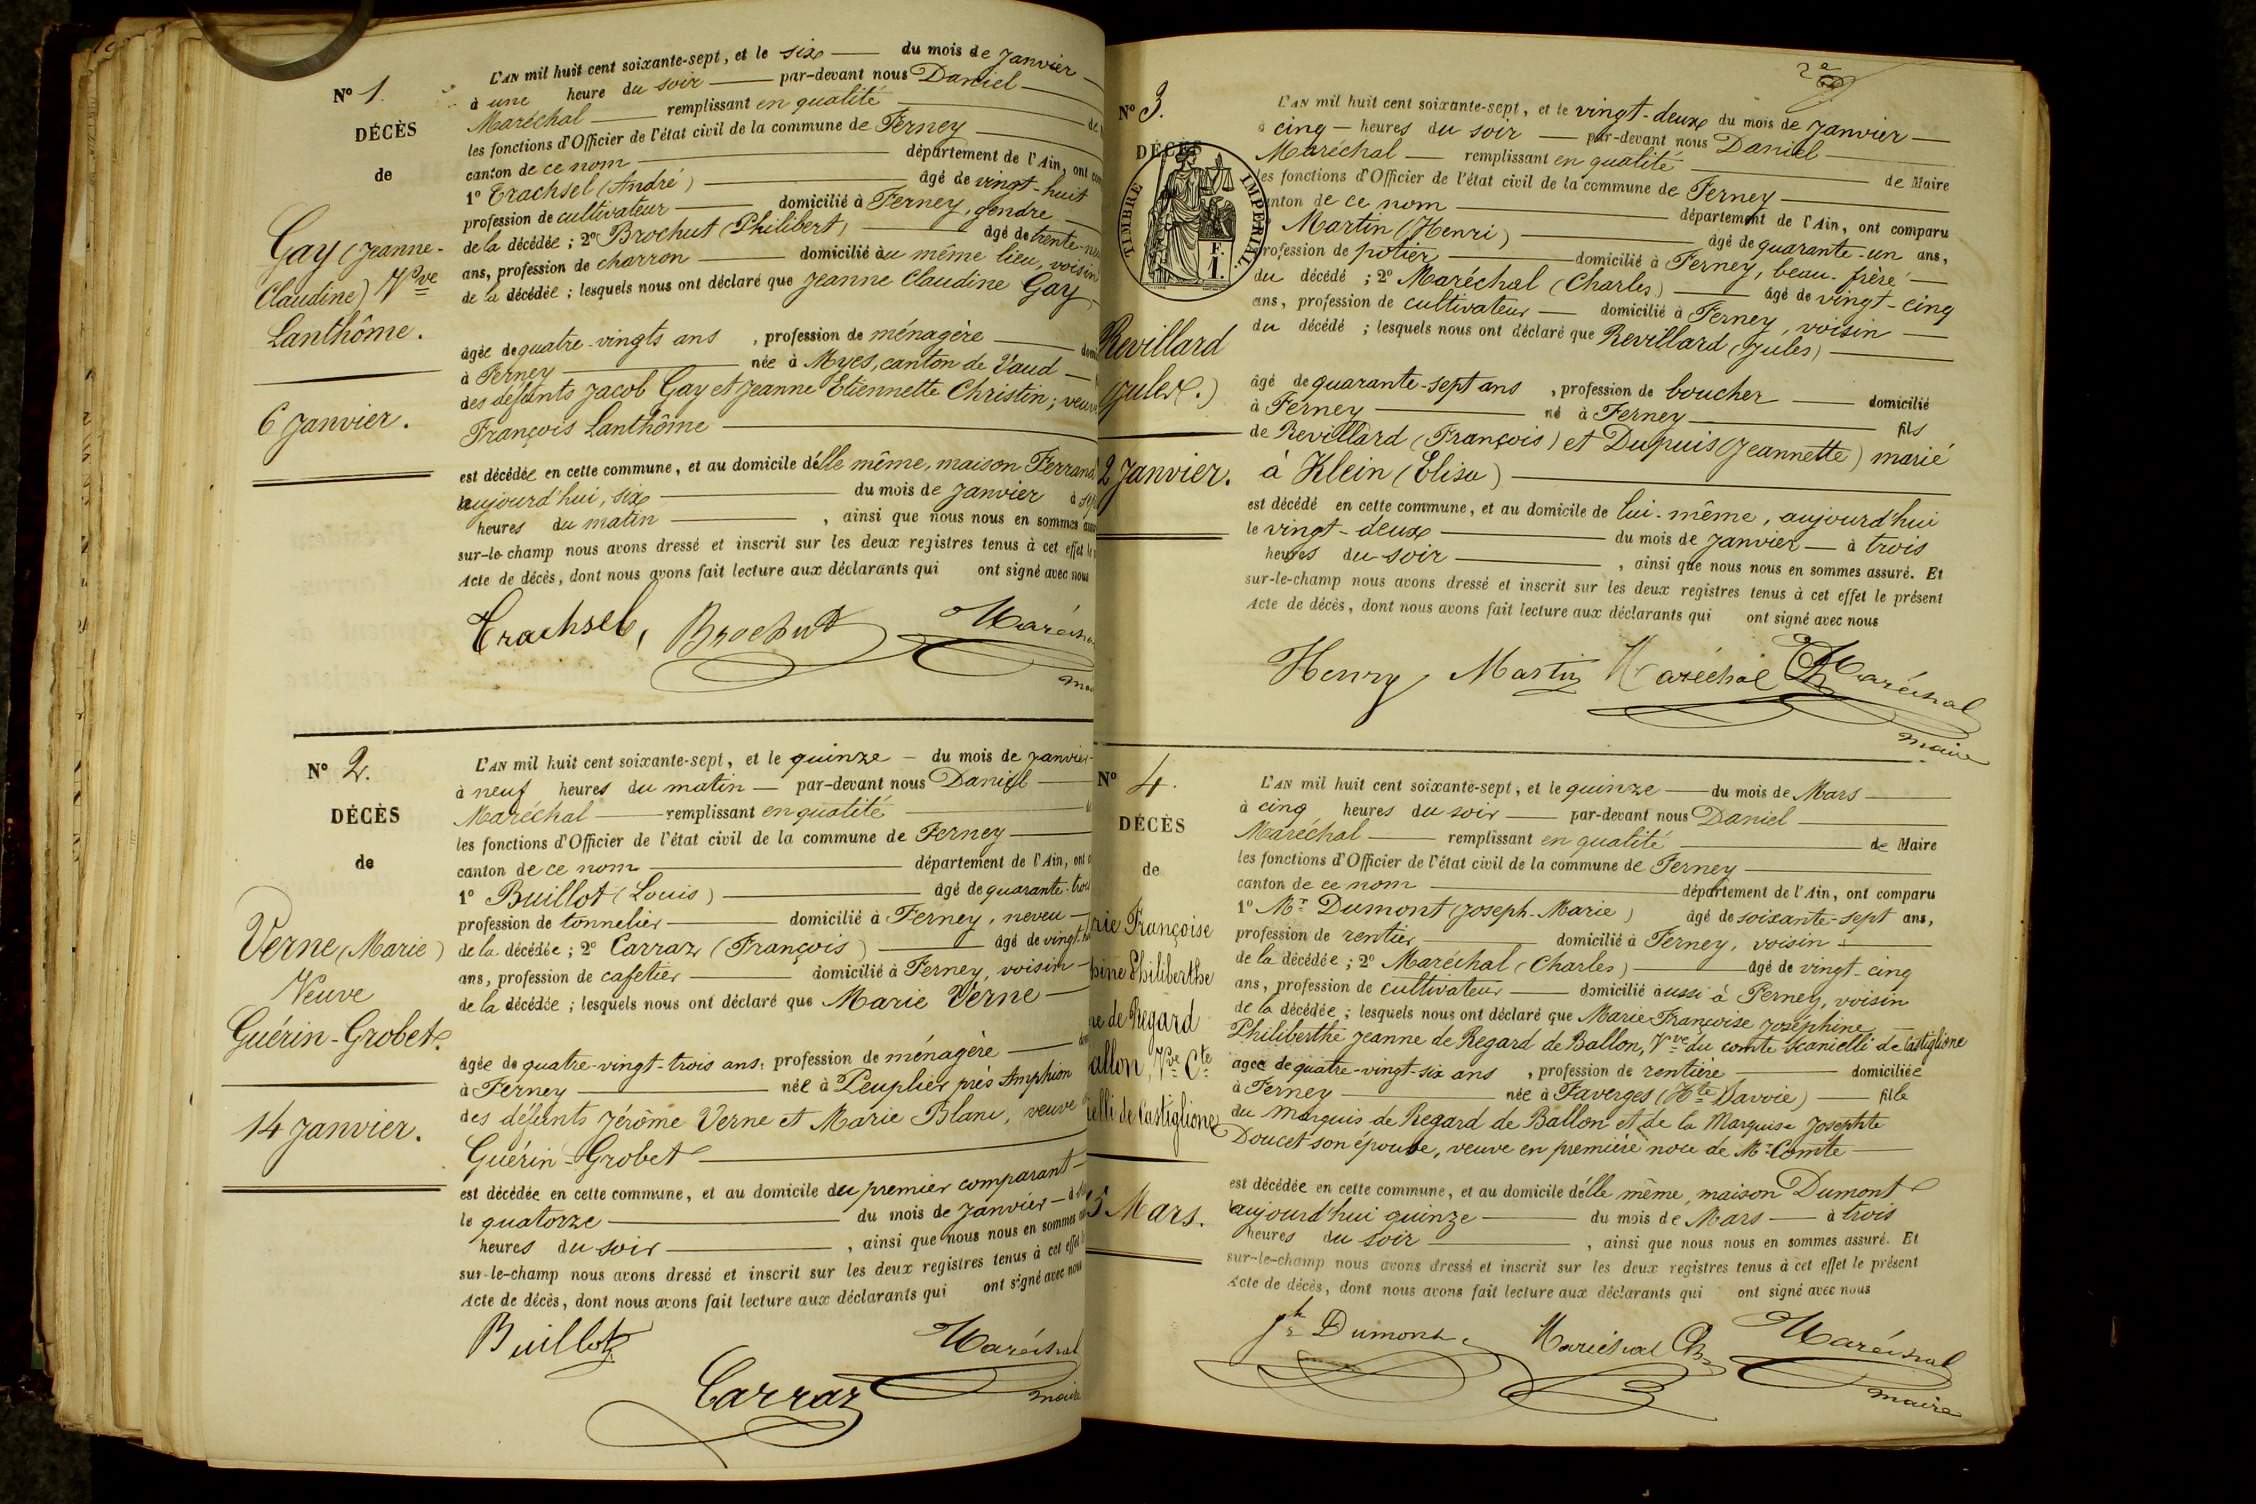 Nº 1.
DÉCÈS
de
Gay (Jeanne-
Claudine) Vve
Lanthôme.
6 Janvier.
L'AN mil huit cent soixante-sept, et le six du mois de Janvier
à une heure du soir par-devant nous Daniel
Maréchal remplissant en qualité de
les fonctions d'Officier de l'état civil de la commune de Ferney
canton de ce nom département de l'Ain, ont
1º Trachsel (André) âgé de vingt-huit
profession de cultivateur domicilié à Ferney, gendre
de la décédée ; 2º Brochut (Philibert) âgé de trente
ans, profession de charron domicilié au même lieu, voisin
de la décédée ; lesquels nous ont déclaré que Jeanne Claudine Gay
âgée de quatre-vingts ans , profession de ménagère
à Ferney née à Myes, canton de Vaud
des défunts Jacob Gay et Jeanne Etiennette Christin ; veuve
François Lanthôme
est décédée en cette commune, et au domicile d'elle même, maison Ferrand
aujourd'hui, six du mois de Janvier à
heures du matin , ainsi que nous nous en sommes
sur-le-champ nous avons dressé et inscrit sur les deux registres tenus à cet effet
Acte de décès, dont nous avons fait lecture aux déclarants qui ont signé avec nous
Trachsel, Brochut Maréchal
Nº 2.
DÉCÈS
de
Verne (Marie)
Veuve
Guérin-Grobet.
14 Janvier.
L'AN mil huit cent soixante-sept, et le quinze du mois de Janvier
à neuf heures du matin par-devant nous Daniel
Maréchal remplissant en qualité
les fonctions d'Officier de l'état civil de la commune de Ferney
canton de ce nom département de l'Ain, ont
1º Buillot (Louis) âgé de quarante-trois
profession de tonnelier domicilié à Ferney, neveu
de la décédée ; 2º Carraz (François) âgé de vingt
ans, profession de cafetier domicilié à Ferney, voisin
de la décédée ; lesquels nous ont déclaré que Marie Verne
âgée de quatre-vingt-trois ans, profession de ménagère
à Ferney née à Peuplier près Amphion
des défunts Jérôme Verne et Marie Blanc, veuve
Guérin-Grobet
est décédée en cette commune, et au domicile du premier comparant
le quatorze du mois de Janvier à
heures du soir , ainsi que nous nous en sommes
sur-le-champ nous avons dressé et inscrit sur les deux registres tenus à cet effet
Acte de décès, dont nous avons fait lecture aux déclarants qui ont signé avec nous
Buillot Maréchal
Carraz maire
2e
Nº 3.
DÉCÈS
TIMBRE IMPÉRIAL.
F.
1.
Revillard
(Jules.)
2 Janvier.
L'AN mil huit cent soixante-sept, et le vingt-deux du mois de Janvier
à cinq heures du soir par-devant nous Daniel
Maréchal remplissant en qualité de Maire
les fonctions d'Officier de l'état civil de la commune de Ferney
canton de ce nom département de l'Ain, ont comparu
Martin (Henri) âgé de quarante-un ans,
profession de potier domicilié à Ferney, beau-frère
du décédé ; 2º Maréchal (Charles) âgé de vingt-cinq
ans, profession de cultivateur domicilié à Ferney, voisin
du décédé ; lesquels nous ont déclaré que Revillard (Jules)
âgé de quarante-sept ans , profession de boucher domicilié
à Ferney né à Ferney fils
de Revillard (François) et Dupuis (Jeannette) marié
à Klein (Elisa)
est décédé en cette commune, et au domicile de lui-même, aujourd'hui
le vingt-deux du mois de Janvier à trois
heures du soir , ainsi que nous nous en sommes assuré. Et
sur-le-champ nous avons dressé et inscrit sur les deux registres tenus à cet effet le présent
Acte de décès, dont nous avons fait lecture aux déclarants qui ont signé avec nous
Henry Martin Maréchal Ch Maréchal
maire
Nº 4.
DÉCÈS
de
rie Françoise
phine Philiberthe
ne de Regard
allon, Vve Cte
ielli de Castiglione
15 Mars.
L'AN mil huit cent soixante-sept, et le quinze du mois de Mars
à cinq heures du soir par-devant nous Daniel
Maréchal remplissant en qualité de Maire
les fonctions d'Officier de l'état civil de la commune de Ferney
canton de ce nom département de l'Ain, ont comparu
1º Mr Dumont (Joseph-Marie) âgé de soixante-sept ans,
profession de rentier domicilié à Ferney, voisin
de la décédée ; 2º Maréchal (Charles) âgé de vingt-cinq
ans, profession de cultivateur domicilié aussi à Ferney, voisin
de la décédée ; lesquels nous ont déclaré que Marie Françoise Joséphine
Philiberthe Jeanne de Regard de Ballon, Vve du comte Scanielli de Castiglione
agee de quatre-vingt-six ans , profession de rentière domiciliée
à Ferney née à Faverges (Hte Savoie) fille
du Marquis de Regard de Ballon et de la Marquise Josephte
Doucet son épouse, veuve en première noce de Mr Comte
est décédée en cette commune, et au domicile d'elle même, maison Dumont
aujourd'hui quinze du mois de Mars à trois
heures du soir , ainsi que nous nous en sommes assuré. Et
sur-le-champ nous avons dressé et inscrit sur les deux registres tenus à cet effet le présent
Acte de décès, dont nous avons fait lecture aux déclarants qui ont signé avec nous
Jh Dumont Maréchal Ch Maréchal
maire